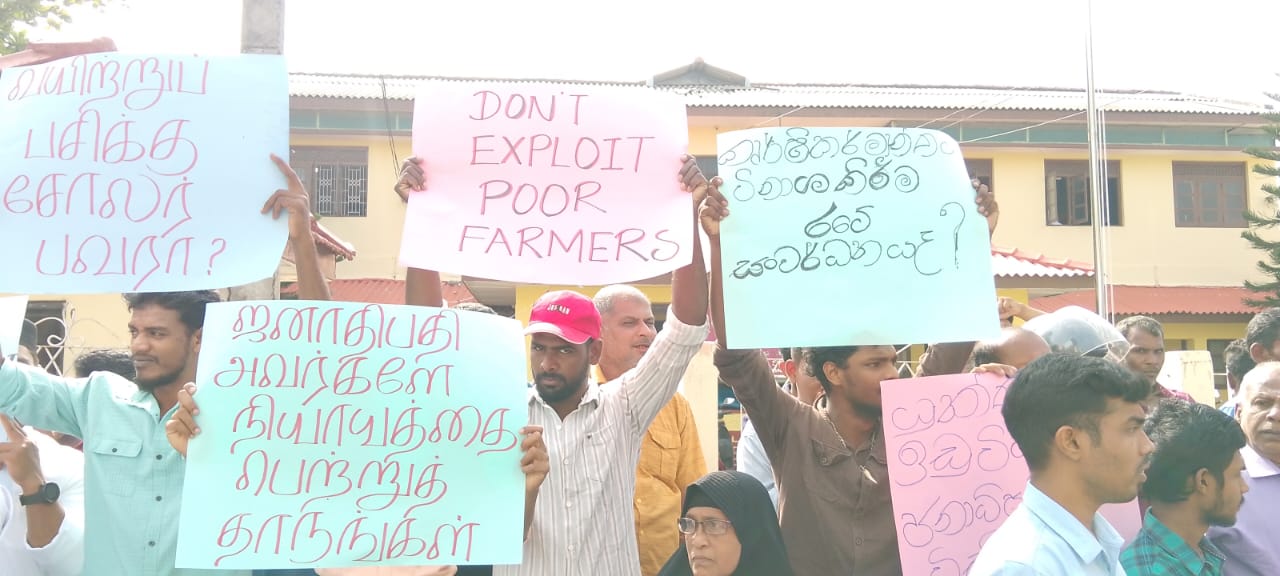 வயிற்றுப்
பசிக்கு
சோலர்
பவரா?
DON'T
EXPLOIT
POOR
FARMERS
විනාශකිරීම
රටේ
සංවර්ධනයද?
ஜனாதிபதி
அவர்களே
நியாயத்தை
பெற்றுத்
தாருங்கள்